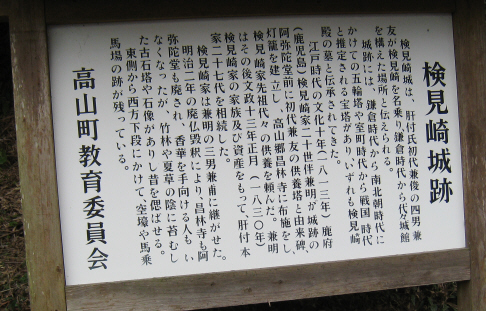 検見崎城跡
検見崎城は、肝付氏初代兼俊の四男兼
友が検見崎を名乗り、鎌倉時代から代々城館
を構えた場所と伝えられる。
城跡には、鎌倉時代から南北朝時代に
かけての五輪塔や室町時代から戦国時代
と推定される宝塔があり、いずれも検見崎
殿の墓と伝承されてきた。
江戸時代の文化十年(一八一三年)鹿府
(鹿児島)検見崎家二十世伴兼明が城跡の
阿弥陀堂前に初代兼友の供養塔と由来碑、
灯籠を建立し、高山郷昌林寺に布施をし、
検見崎家先祖代々の供養を頼んだ。兼明
はその後文政十三年正月(一八三〇年)
検見崎家の家族及び資産をもって、肝付本
家二十七代を相続した。
検見崎家は兼明の三男兼甫に継がせた。
明治二年の廃仏毀釈により、昌林寺も阿
弥陀堂も廃され、香華を手向ける人もい
なくなったが、竹林や夏草の陰に苔むし
た古石塔や石像がありし昔を偲ばせる。
東側から西方下段にかけて、空壕や馬乗
馬場の跡が残っている。
高山町教育委員会